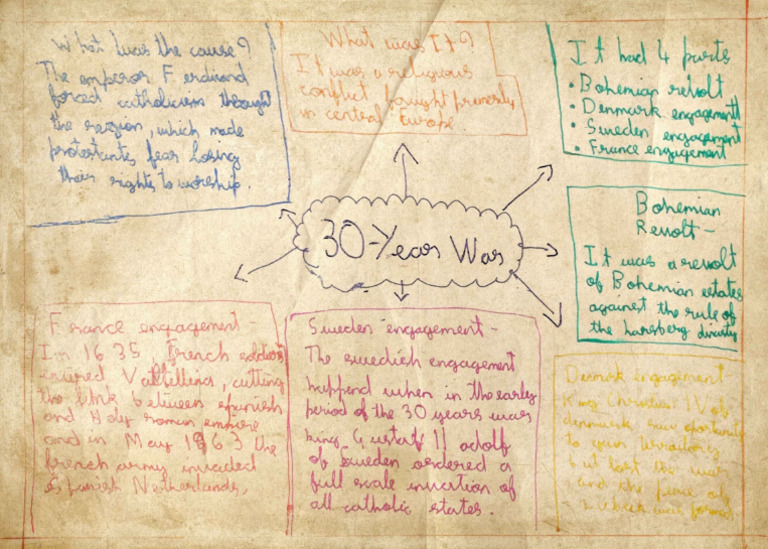 What was the cause?
The emperor Ferdinand
forced catholicism throught
the region, which made
protestants fear losing
their rights to worship.
What was It?
It was a religious
conflict fought primerly
in central Europe
It had 4 parts
• Bohemian revolt
• Denmark engagement
• Sweden engagement
• France engagement
30-Year War
Bohemian
Revolt-
It was a revolt
of Bohemian estates
against the rule of
the
France engagement-
In 1635, French
Valtellina, cutting
the link between spanish
and Holy roman empire
and in May the
french army invaded
spanish Netherlands.
Sweden engagement-
The swedish engagement
happend when in the early
period of the 30 years was
king Gustaf II adolf
of sweden ordered a
full scale invastion of
all catholic states.
Denmark engagement
King Christian IV of
denmark saw
to gain
but lost the war
and the peace of
was formed